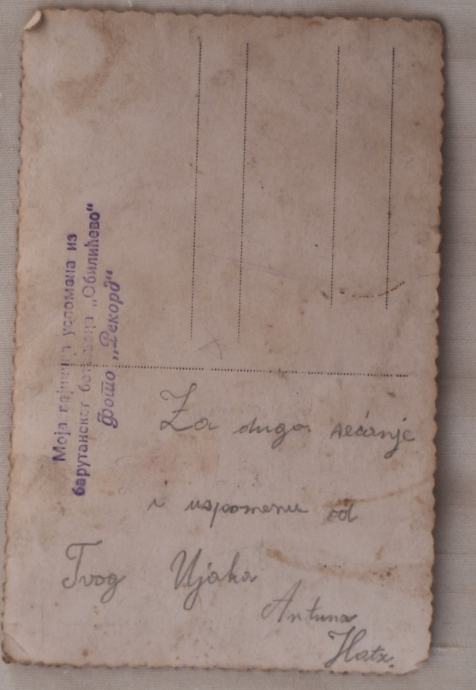 Моја најмилија успомена из
барутанског батаљона „Обилићево“
Фото „Рекорд“
Za dugo sećanje
i uspomenu od
Tvog Ujaka
Antuna